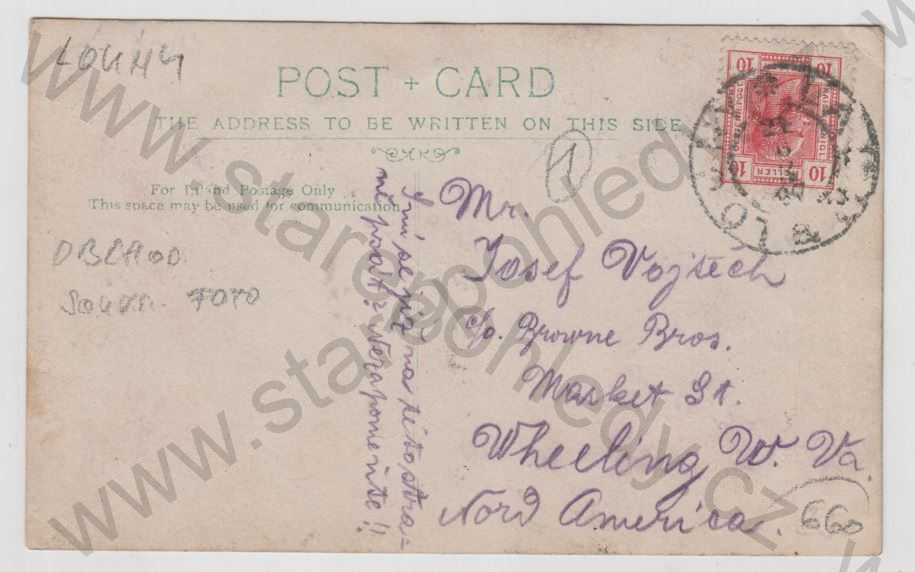 LOUNY
POST + CARD
THE ADDRESS TO BE WRITTEN ON THIS SIDE
For Inland Postage Only
This space may be used for communication
OBCHOD
SOUKR. FOTO
1
10 10
10 10
Mr.
Josef Vojtěch
c/o. Browne Bros.
Market St.
Wheeling W. Va.
Nord America.
660
na této stra-
ně psát? Nezapomeňte!!
www.starepohledy.cz